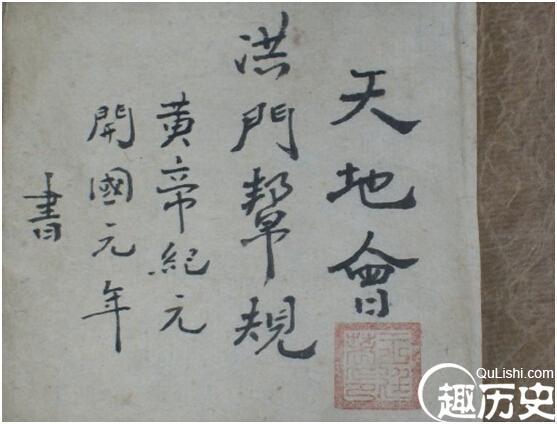 天地會
洪門幫規
黃帝紀元
開國元年
書
QuLishi.com
趣历史